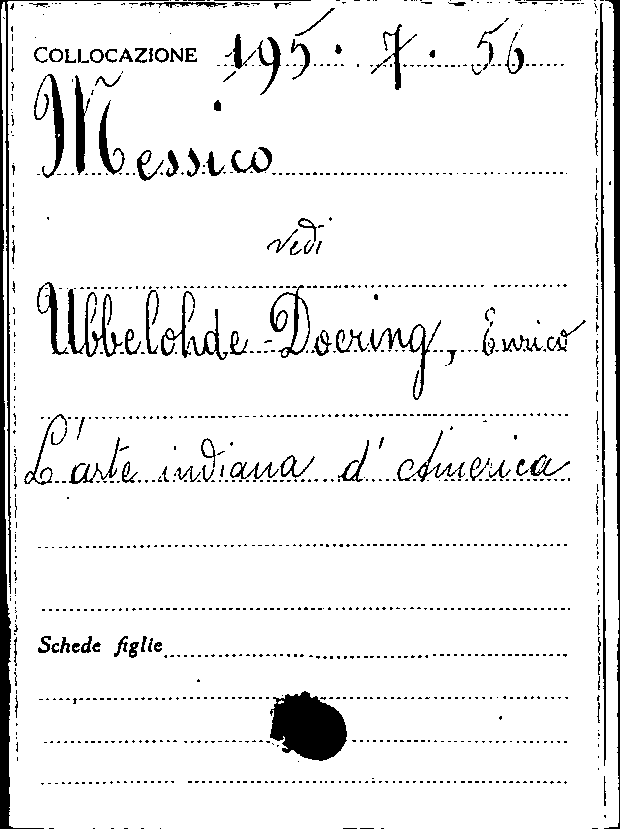 COLLOCAZIONE 195. 7. 56
Messico
vedi
Ubbelohde-Doering, Enrico
L'arte indiana d'America
Schede figlie